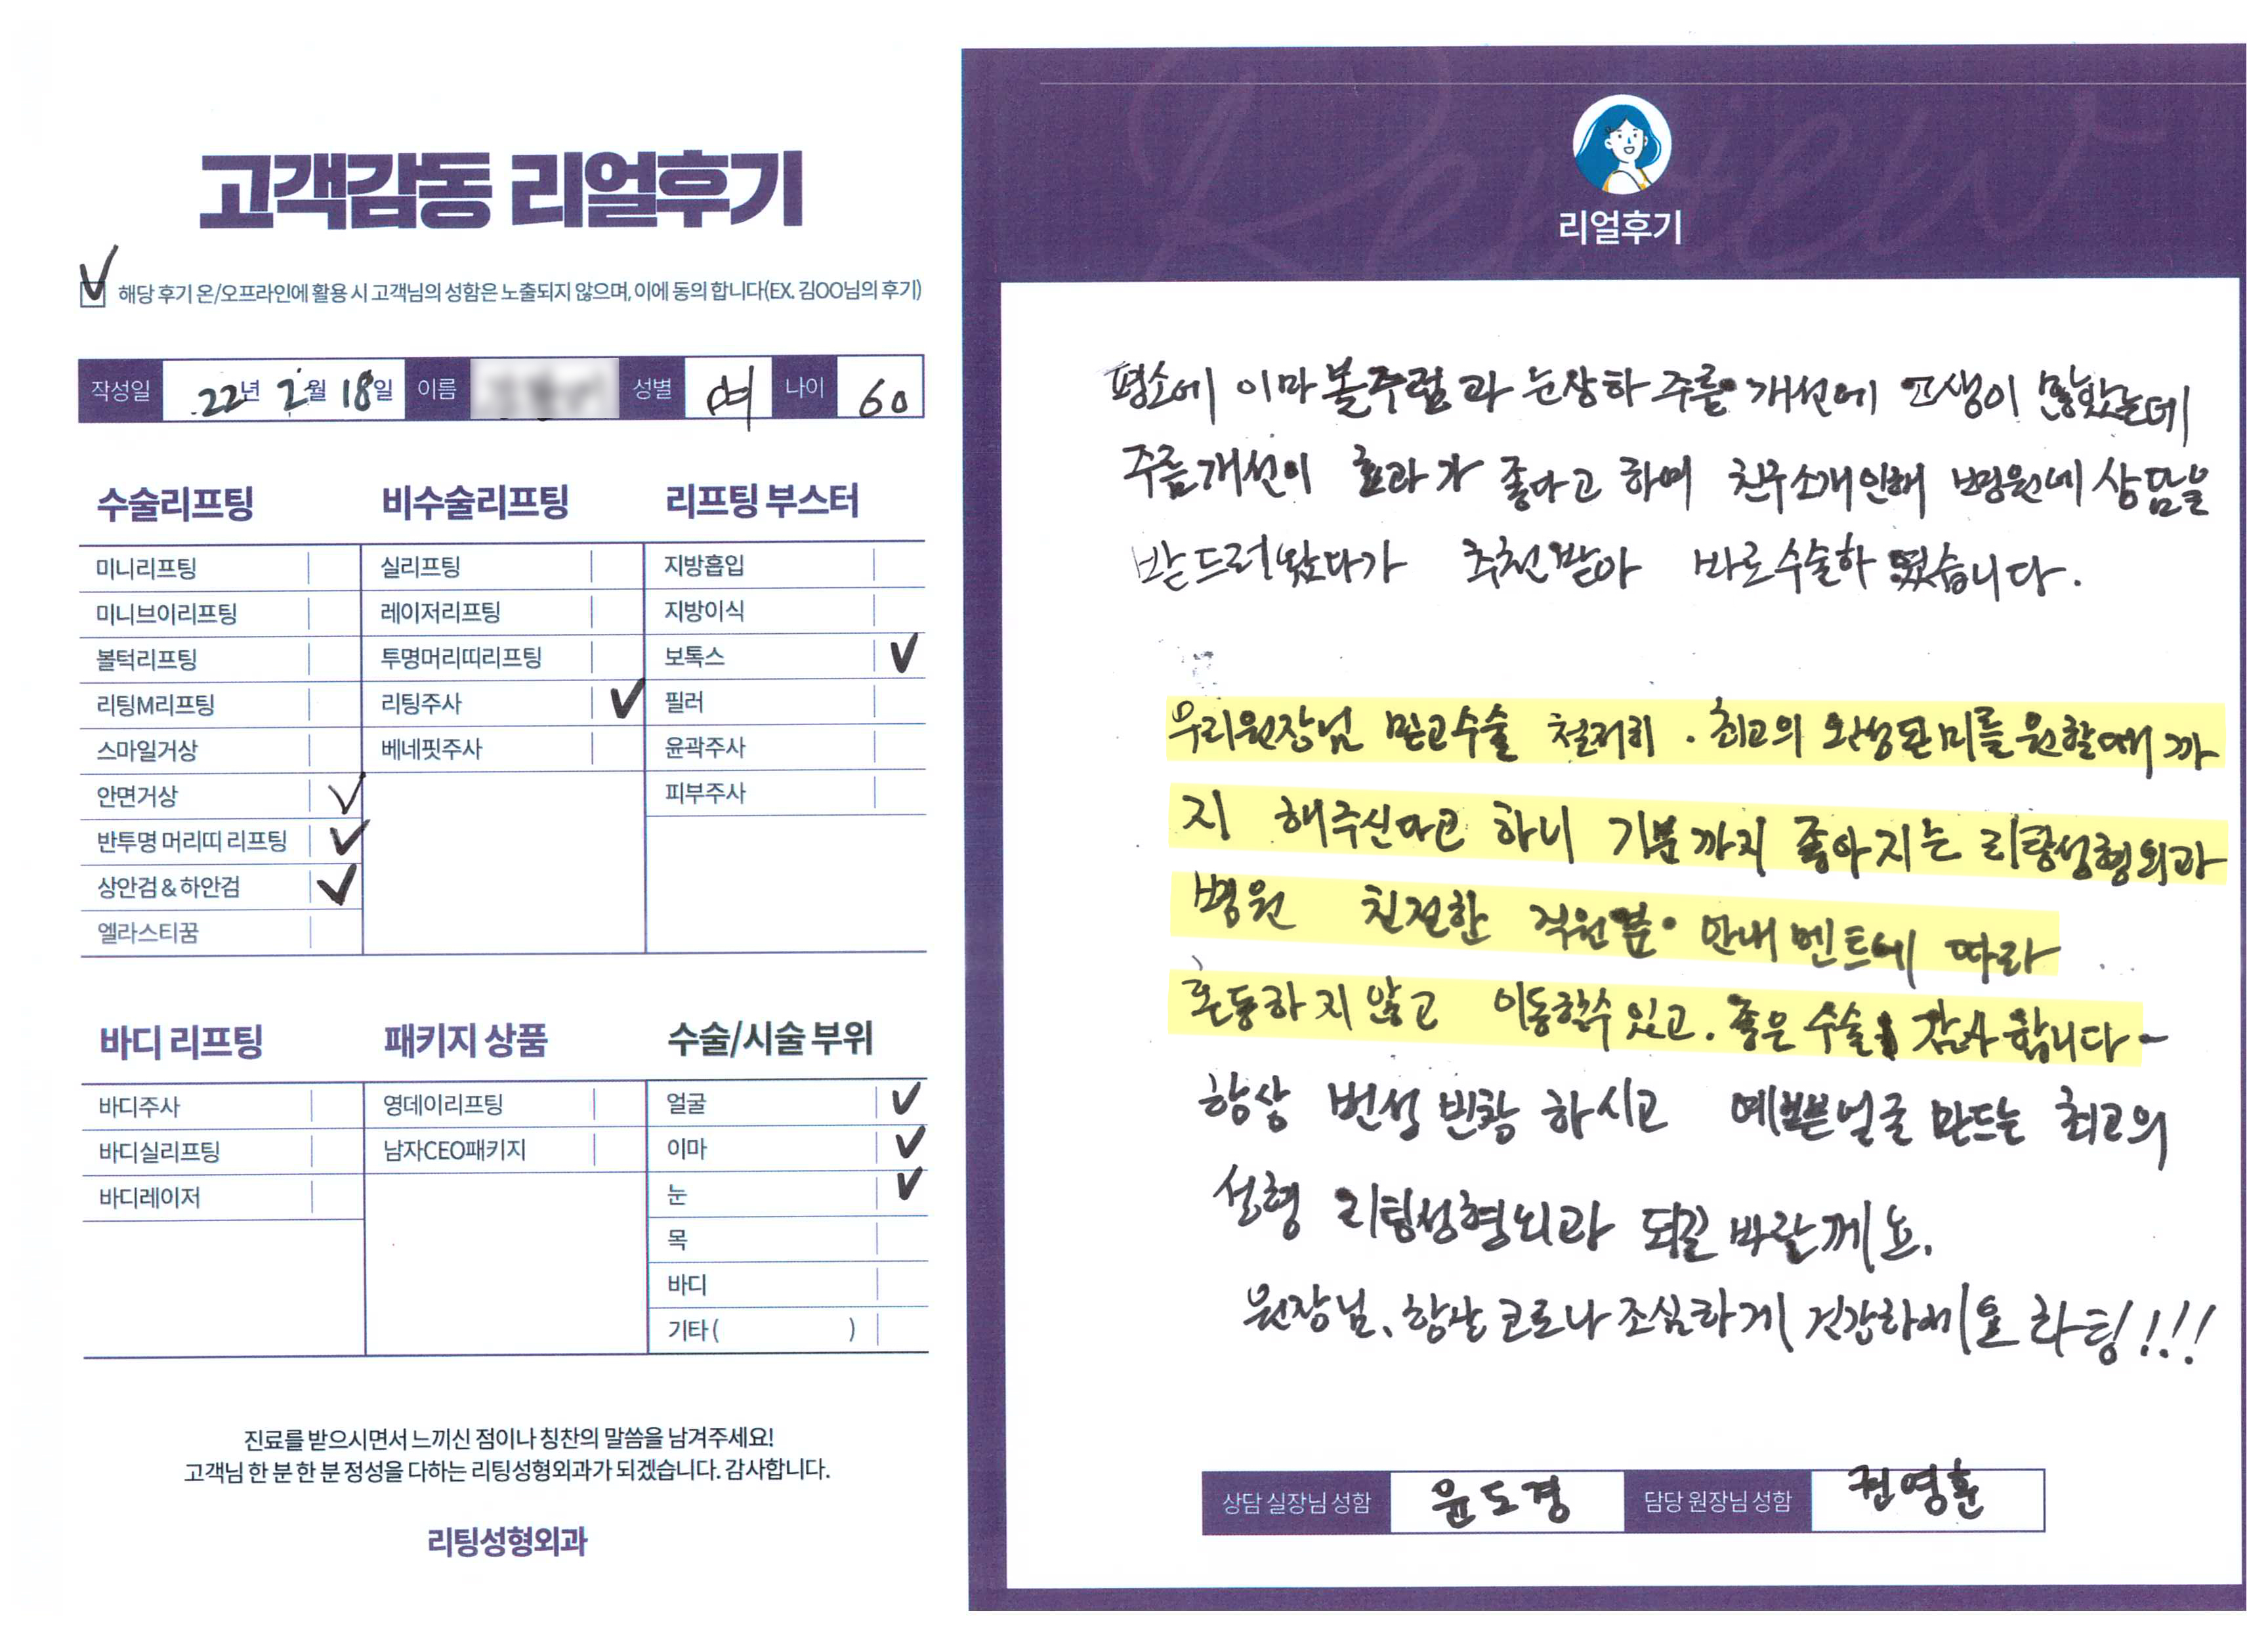 고객감동 리얼후기
해당 후기 온/오프라인에 활용 시 고객님의 성함은 노출되지 않으며, 이에 동의 합니다(EX. 김OO님의 후기)
작성일 22년 2월 18일 이름 성별 여 나이 60
수술리프팅
미니리프팅
미니브이리프팅
볼턱리프팅
리팅M리프팅
스마일거상
안면거상
반투명 머리띠 리프팅
상안검 & 하안검
엘라스티꿈
비수술리프팅
실리프팅
레이저리프팅
투명머리띠리프팅
리팅주사
베네핏주사
리프팅 부스터
지방흡입
지방이식
보톡스
필러
윤곽주사
피부주사
바디 리프팅
바디주사
바디실리프팅
바디레이저
패키지 상품
영데이리프팅
남자CEO패키지
수술/시술 부위
얼굴
이마
눈
목
바디
기타 ( )
진료를 받으시면서 느끼신 점이나 칭찬의 말씀을 남겨주세요!
고객님 한 분 한 분 정성을 다하는 리팅성형외과가 되겠습니다. 감사합니다.
리팅성형외과
Review
리얼후기
평소에 이마 볼주럼과 눈상하 주름 개선에 고생이 많았는데
주름개선이 효과가 좋다고 하여 친구소개인해 병원에 상담을
받드러왔다가 추천받아 바로수술하였습니다.
우리원장님 믿고수술 철저히. 최고의 완성된미를 원할때까
지 해주신다고 하니 기분까지 좋아지는 리팅성형외과
병원 친절한 직원분 안내멘트에 따라
혼동하지않고 이동할수있고. 좋은수술 감사합니다~
항상 번성 번창 하시고 예쁜얼굴 만드는 최고의
성형 리팅성형외과 되길 바랄께요.
원장님, 항상 코로나 조심하게 건강하세요 화팅!!!
상담 실장님 성함 윤도경 담당 원장님 성함 권영훈